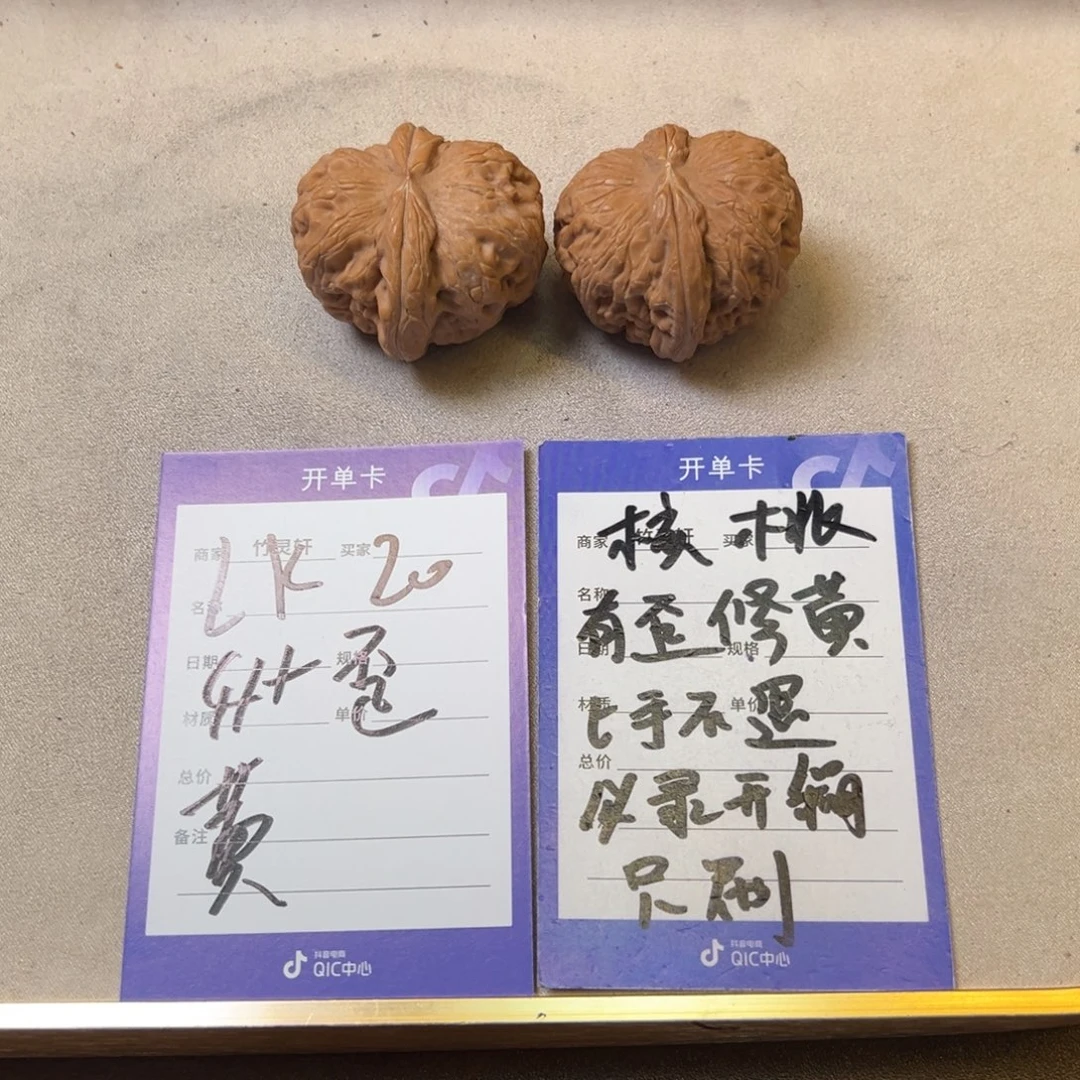 开单卡
商家 竹灵轩 买家
LK 20
名称
日期 规格
歪
材质 单价
总价
黄
备注
抖音电商
QIC中心
开单卡
商家 竹灵轩 买家
核桃
名称
有歪修黄
日期 规格
材质 单价
七手不退
总价
以录开编
只刷
抖音电商
QIC中心